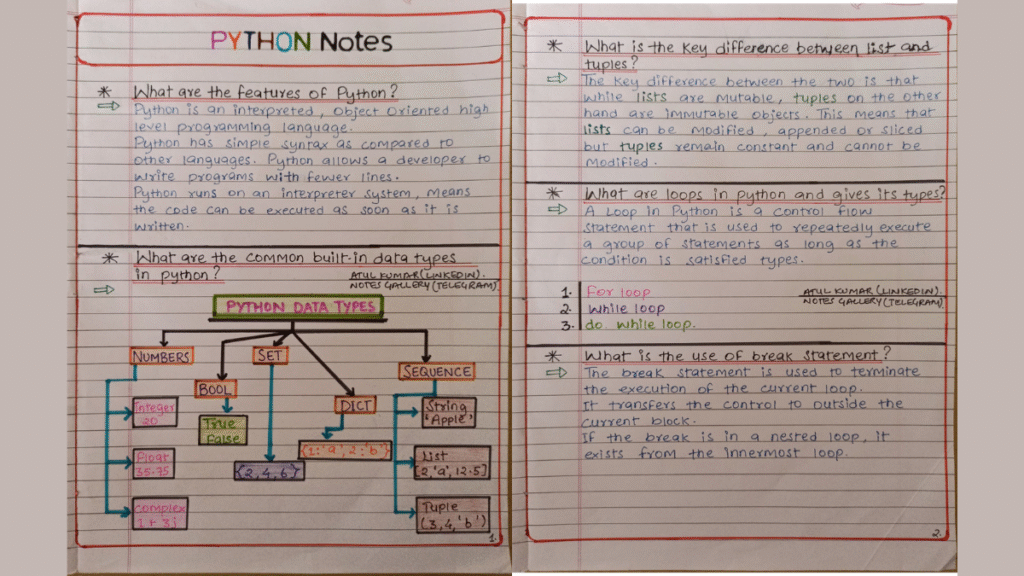 PYTHON Notes
* What are the features of Python?
⇒ Python is an interpreted, object oriented high
level programming language.
Python has simple syntax as compared to
other languages. Python allows a developer to
write programs with fewer lines.
Python runs on an interpreter system, means
the code can be executed as soon as it is
written.
* What are the common built-in data types
in python?
ATUL KUMAR (LINKEDIN).
NOTES GALLERY (TELEGRAM)
⇒
PYTHON DATA TYPES
NUMBERS
SET
SEQUENCE
BOOL
DICT
Integer
20
True
False
String
'Apple'
{1:'a', 2:'b'}
Float
35.75
{2,4,6}
List
[2,'a',12.5]
Complex
1 + 3j
Tuple
(3,4,'b')
1.
* What is the key difference between list and
tuples?
⇒ The key difference between the two is that
while lists are mutable, tuples on the other
hand are immutable objects. This means that
lists can be modified, appended or sliced
but tuples remain constant and cannot be
modified.
* What are loops in python and gives its types?
⇒ A Loop in Python is a control flow
statement that is used to repeatedly execute
a group of statements as long as the
condition is satisfied types.
1. For loop
2. while loop
3. do while loop.
ATUL KUMAR (LINKEDIN).
NOTES GALLERY (TELEGRAM)
* What is the use of break statement?
⇒ The break statement is used to terminate
the execution of the current loop.
It transfers the control to outside the
current block.
If the break is in a nested loop, it
exists from the innermost loop.
2.